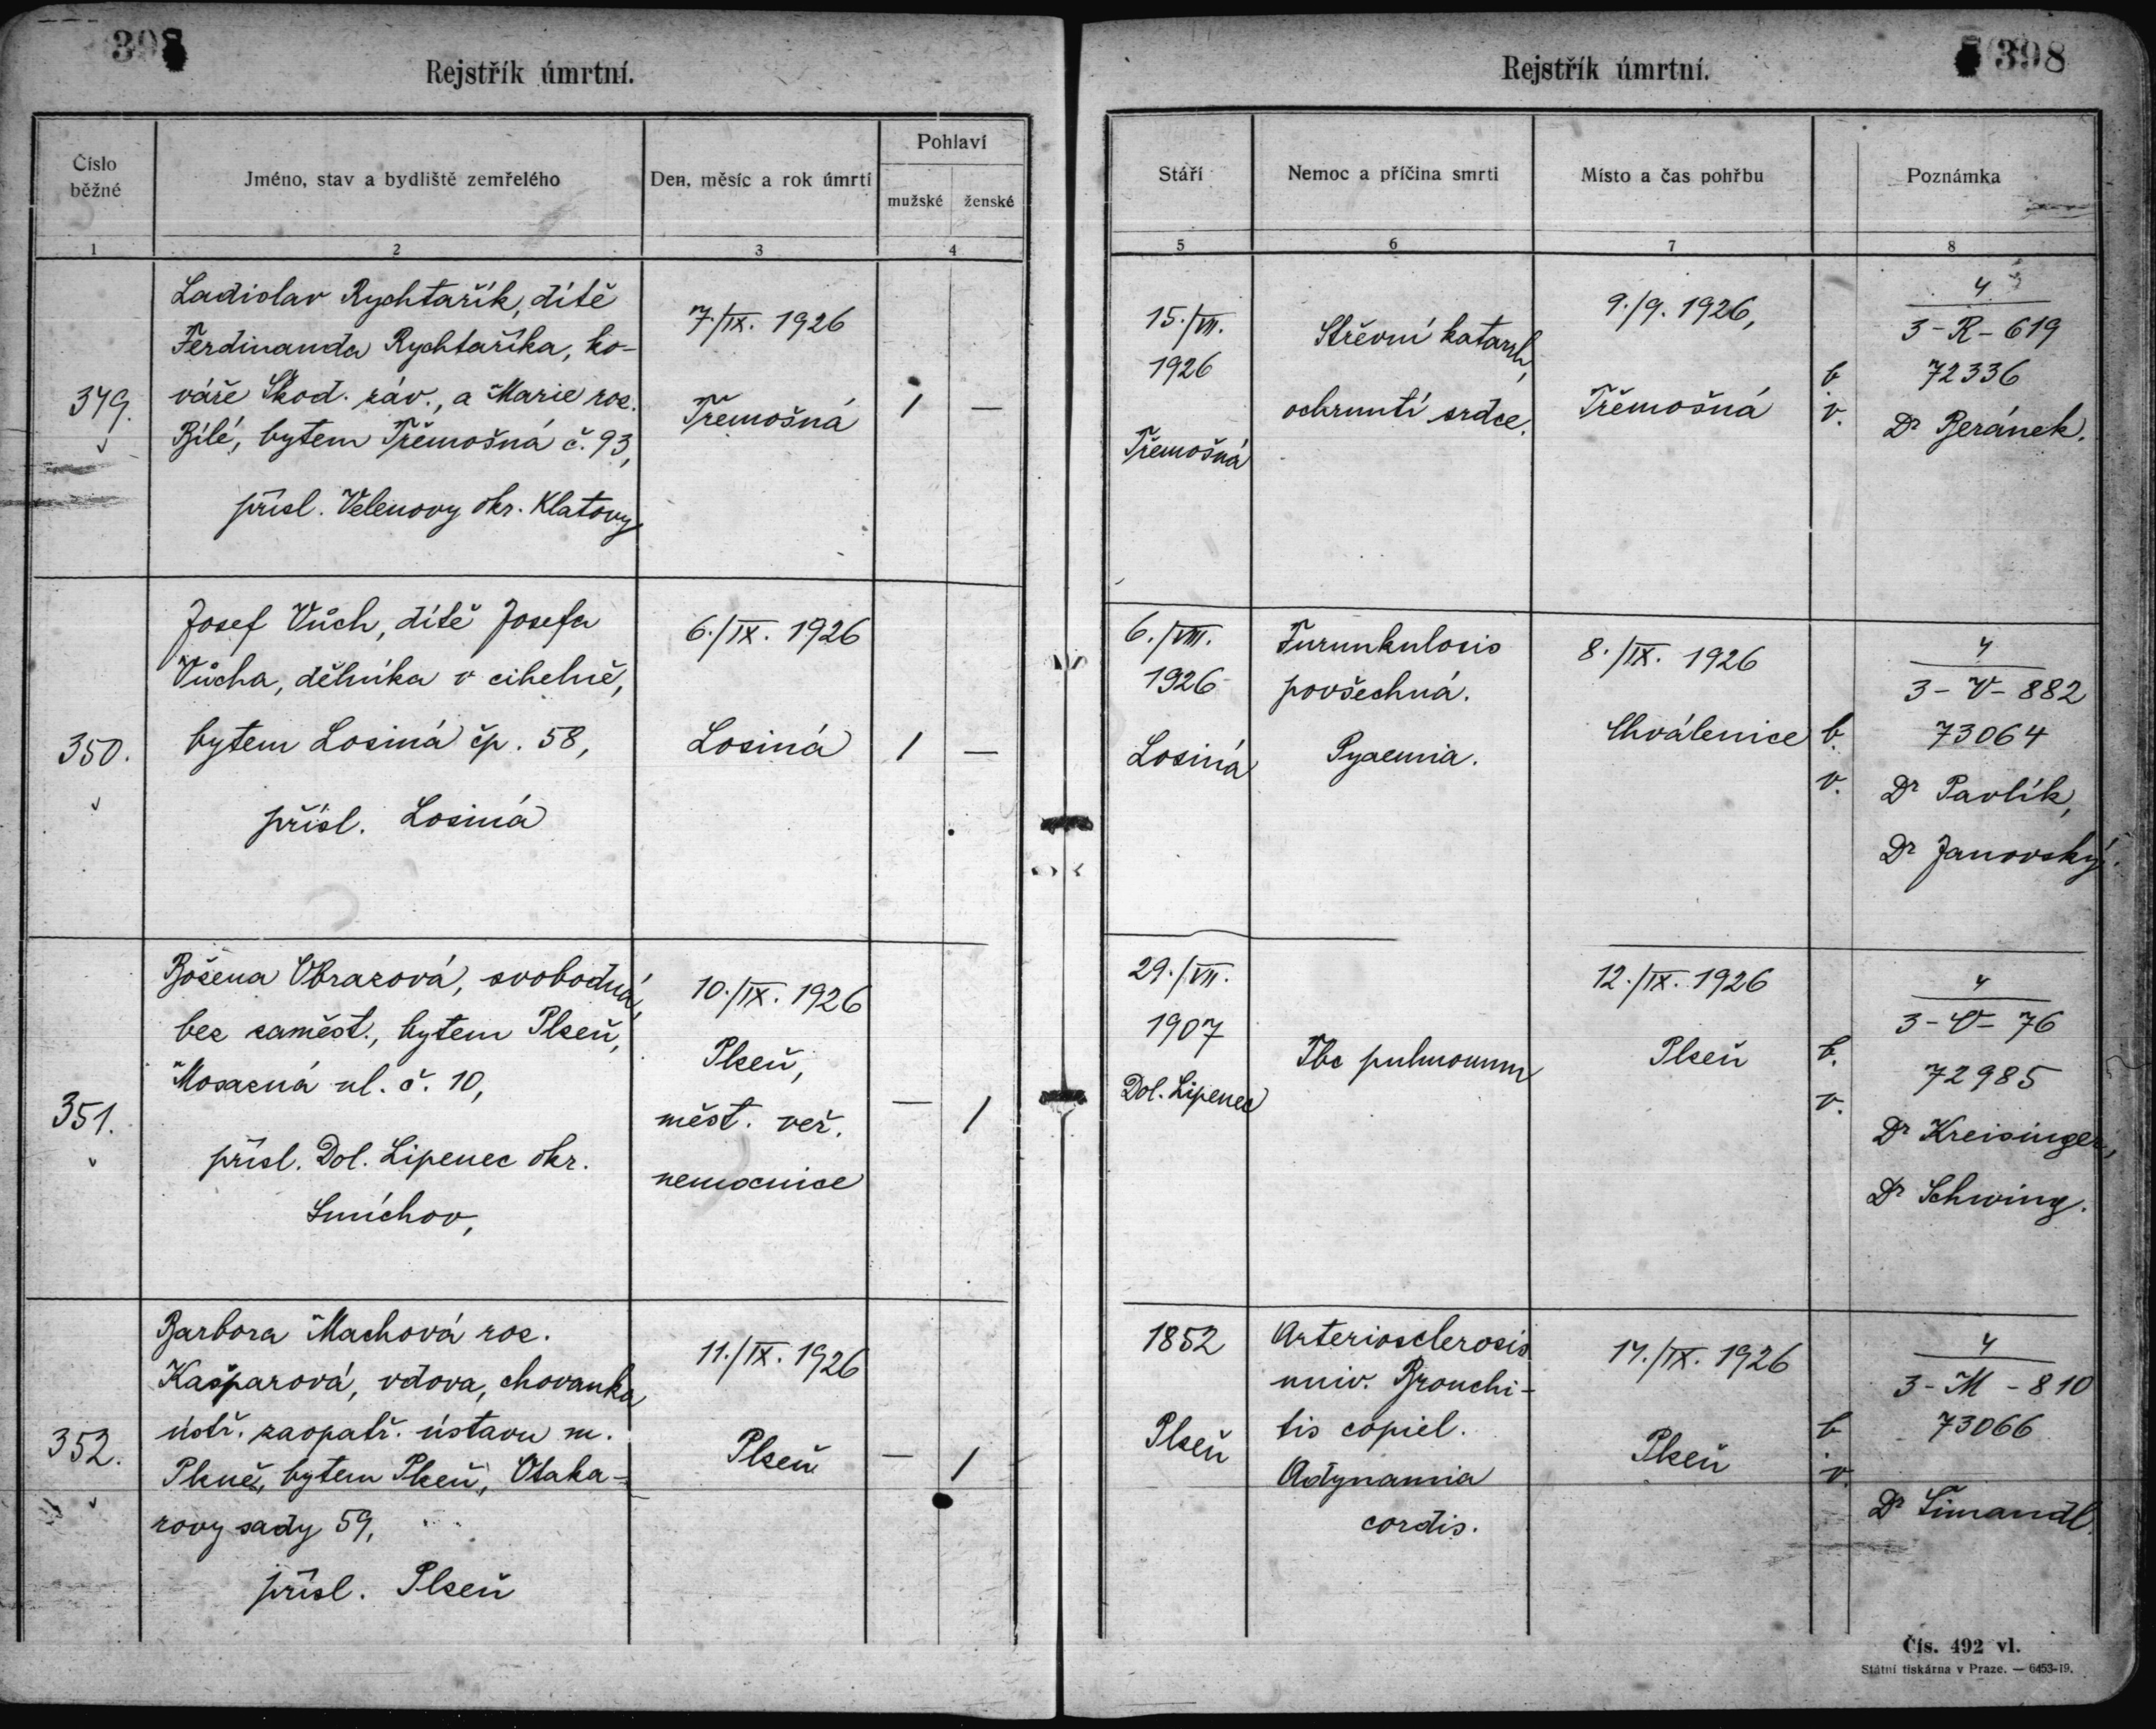 398
Rejstřík úmrtní.
Číslo běžné
Jméno, stav a bydliště zemřelého
Den, měsíc a rok úmrtí
Pohlaví
mužské ženské
1 2 3 4
Ladislav Rychtařík, dítě
Ferdinanda Rychtaříka, ko-
váře Škod. záv., a Marie roz.
Bílé, bytem Třemošná č. 93,
přísl. Velenovy okr. Klatovy
349.
7./IX. 1926
Třemošná
1 —
Josef Vůch, dítě Josefa
Vůcha, dělníka v cihelně,
bytem Losiná čp. 58,
přísl. Losiná
350.
6./IX. 1926
Losiná
1 —
Božena Obrazová, svobodná,
bez zaměst., bytem Plzeň,
Mosazná ul. č. 10,
přísl. Dol. Lipenec okr.
Smíchov,
351.
10./IX. 1926
Plzeň,
měst. veř.
nemocnice
— 1
Barbora Machová roz.
Kašparová, vdova, chovanka
ústř. zaopatř. ústavu m.
Plzně, bytem Plzeň, Otaka-
rovy sady 59,
přísl. Plzeň
352.
11./IX. 1926
Plzeň
— 1
398
Rejstřík úmrtní.
Stáří
Nemoc a příčina smrti
Místo a čas pohřbu
Poznámka
5 6 7 8
15./VII.
1926
Třemošná
Střevní katarrh,
ochrnutí srdce.
9./9. 1926,
Třemošná
b.
v.
4
3-R-619
72336
Dr Beránek.
6./VIII.
1926
Losiná
Furunkulosis
povšechná.
Pyaemia.
8./IX. 1926
Chválenice
b.
v.
4
3-V-882
73064
Dr Pavlík,
Dr Janovský.
29./VII.
1907
Dol. Lipenec
Tbc pulmonum
12./IX. 1926
Plzeň
b.
v.
4
3-O-76
72985
Dr Kreisinger,
Dr Schwing.
1852
Plzeň
Arteriosclerosis
univ. Bronchi-
tis capiel.
Adynamia
cordis.
14./IX. 1926
Plzeň
b.
v.
4
3-M-810
73066
Dr Šimandl.
Čís. 492 vl.
Státní tiskárna v Praze. — 6453-19.